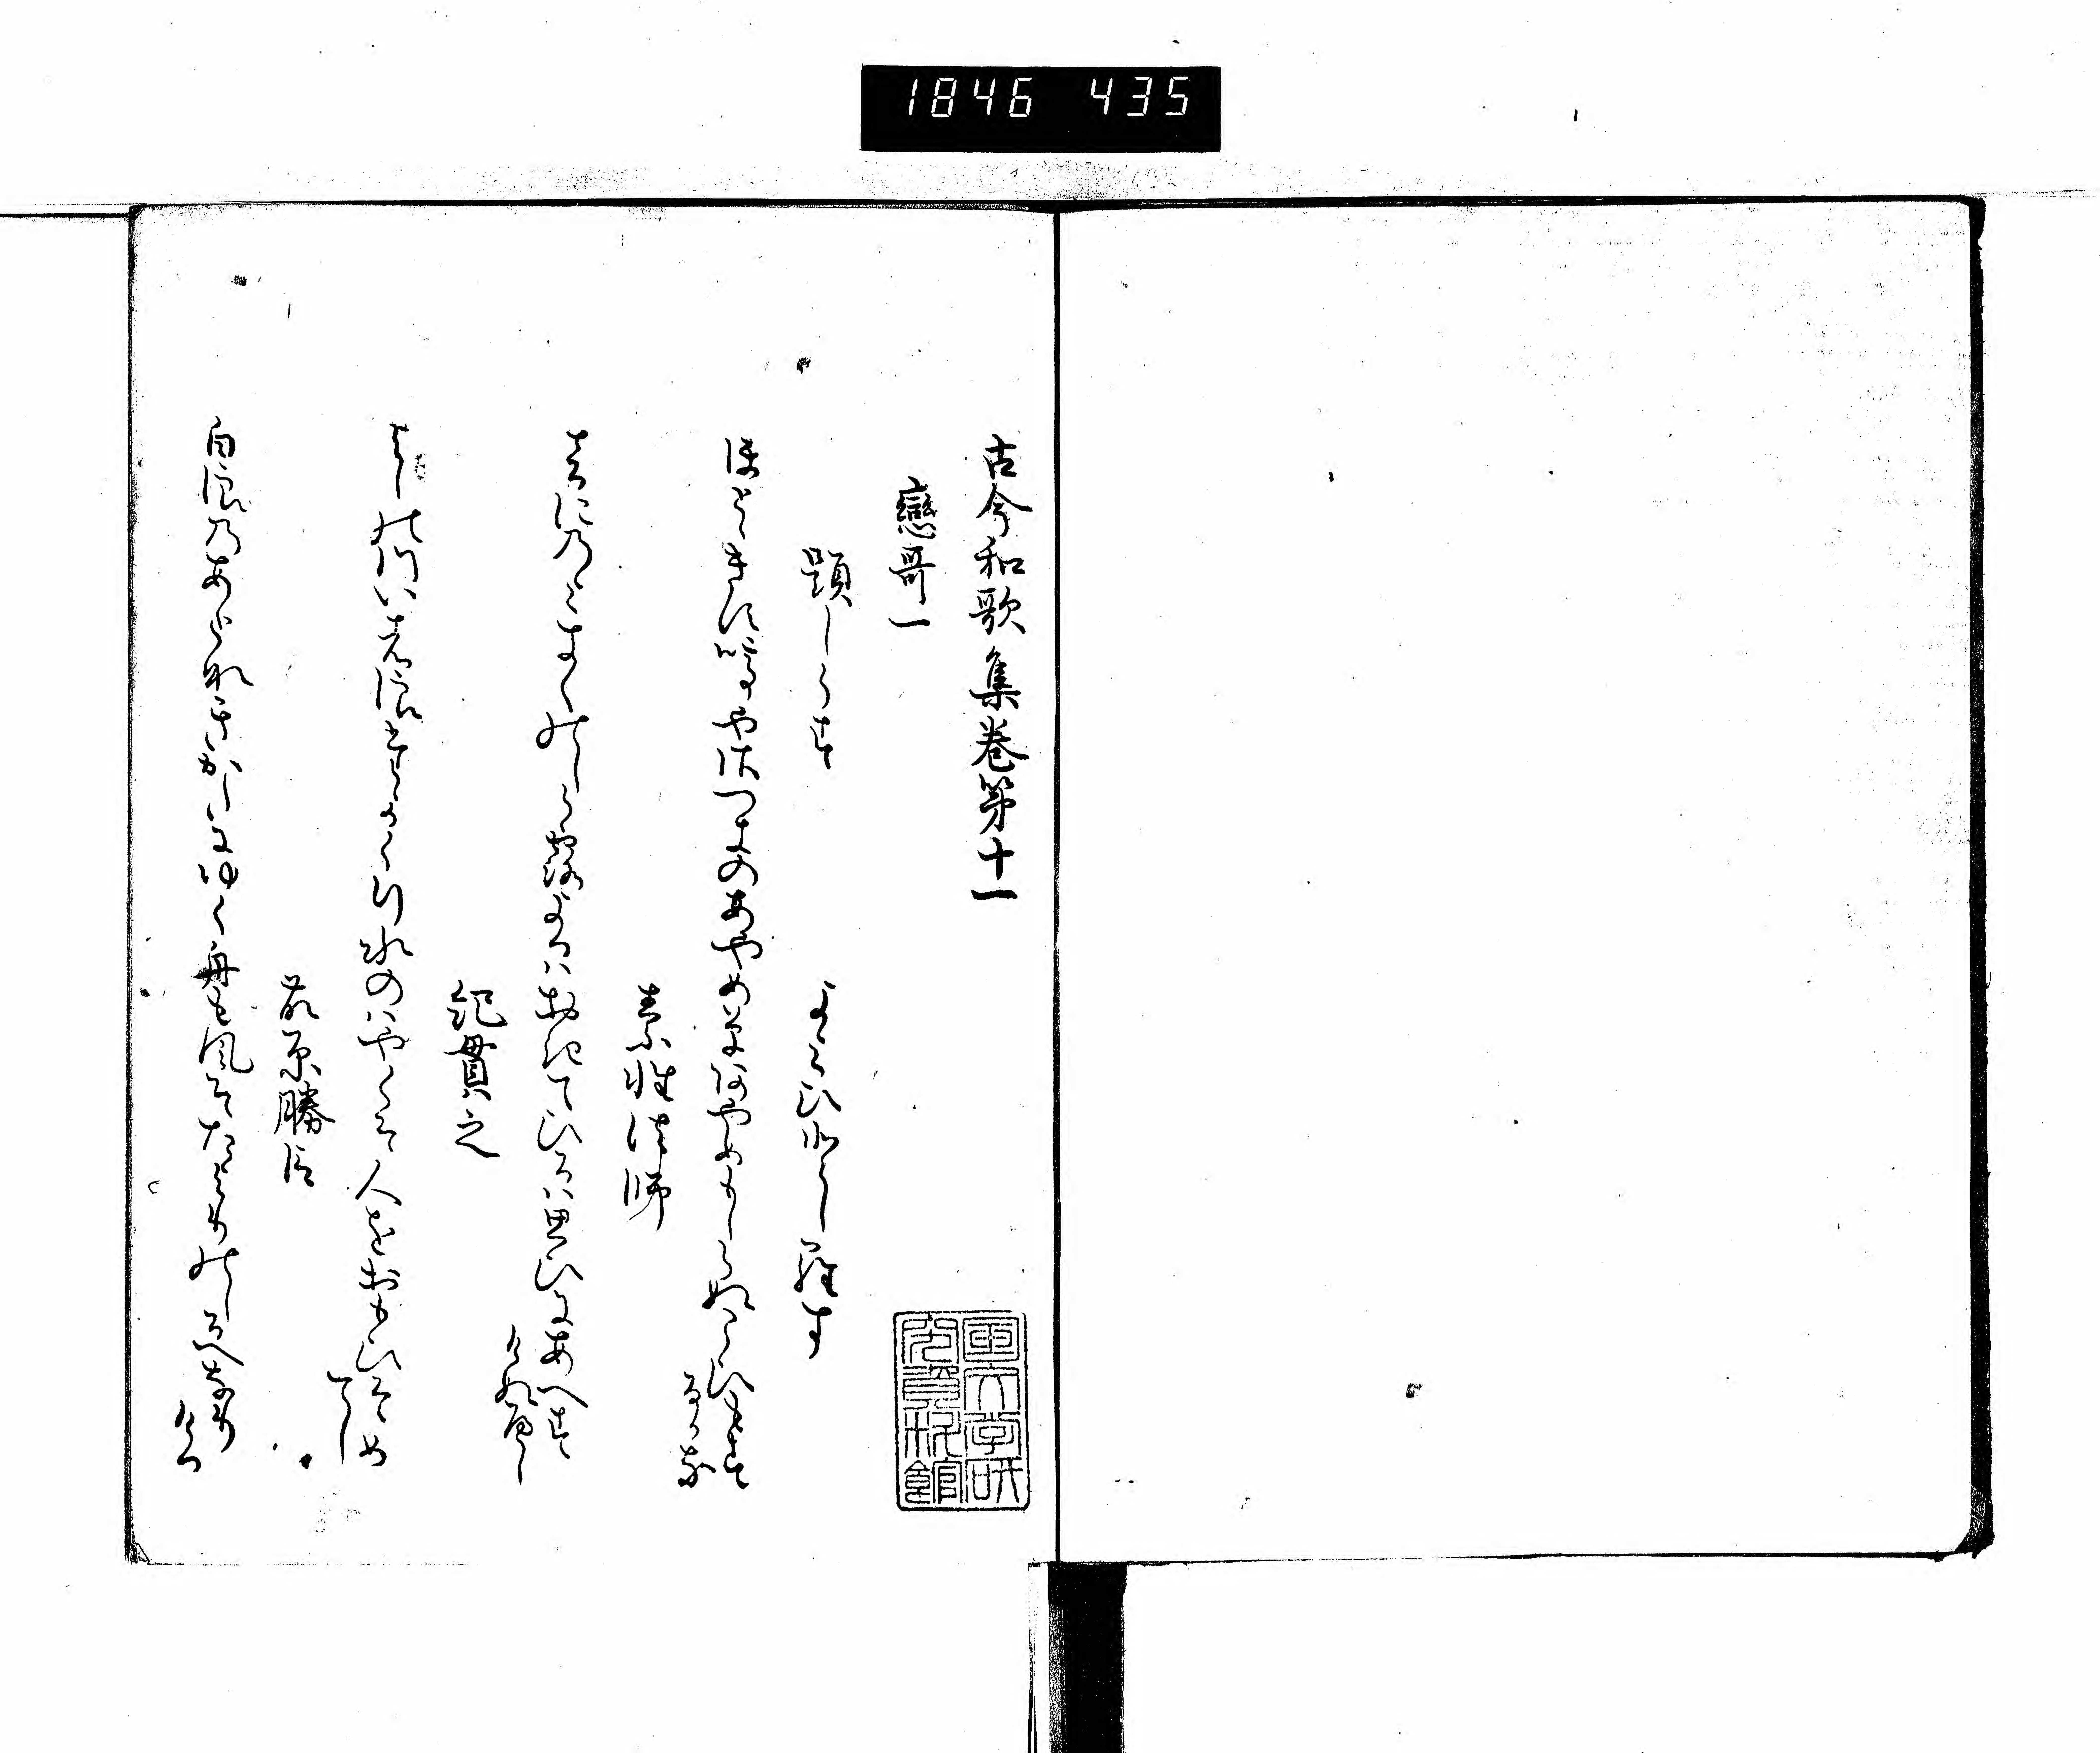 1846 435
古今和歌集巻第十一
戀哥一
題しらす
よみ人しらす
ほとゝきす鳴やさつきのあやめ草あやめもしらぬこひもする
かな
素性法師
をとにのみきくのしら露よるはおきてひるは思ひにあへす
けぬへし
紀貫之
よしの川いは浪たかく行水のはやくそ人をおもひそめ
てし
藤原勝臣
白浪のあとなきかたにゆく舟も風そたよりのしるへなり
ける
国文学研
究資料館